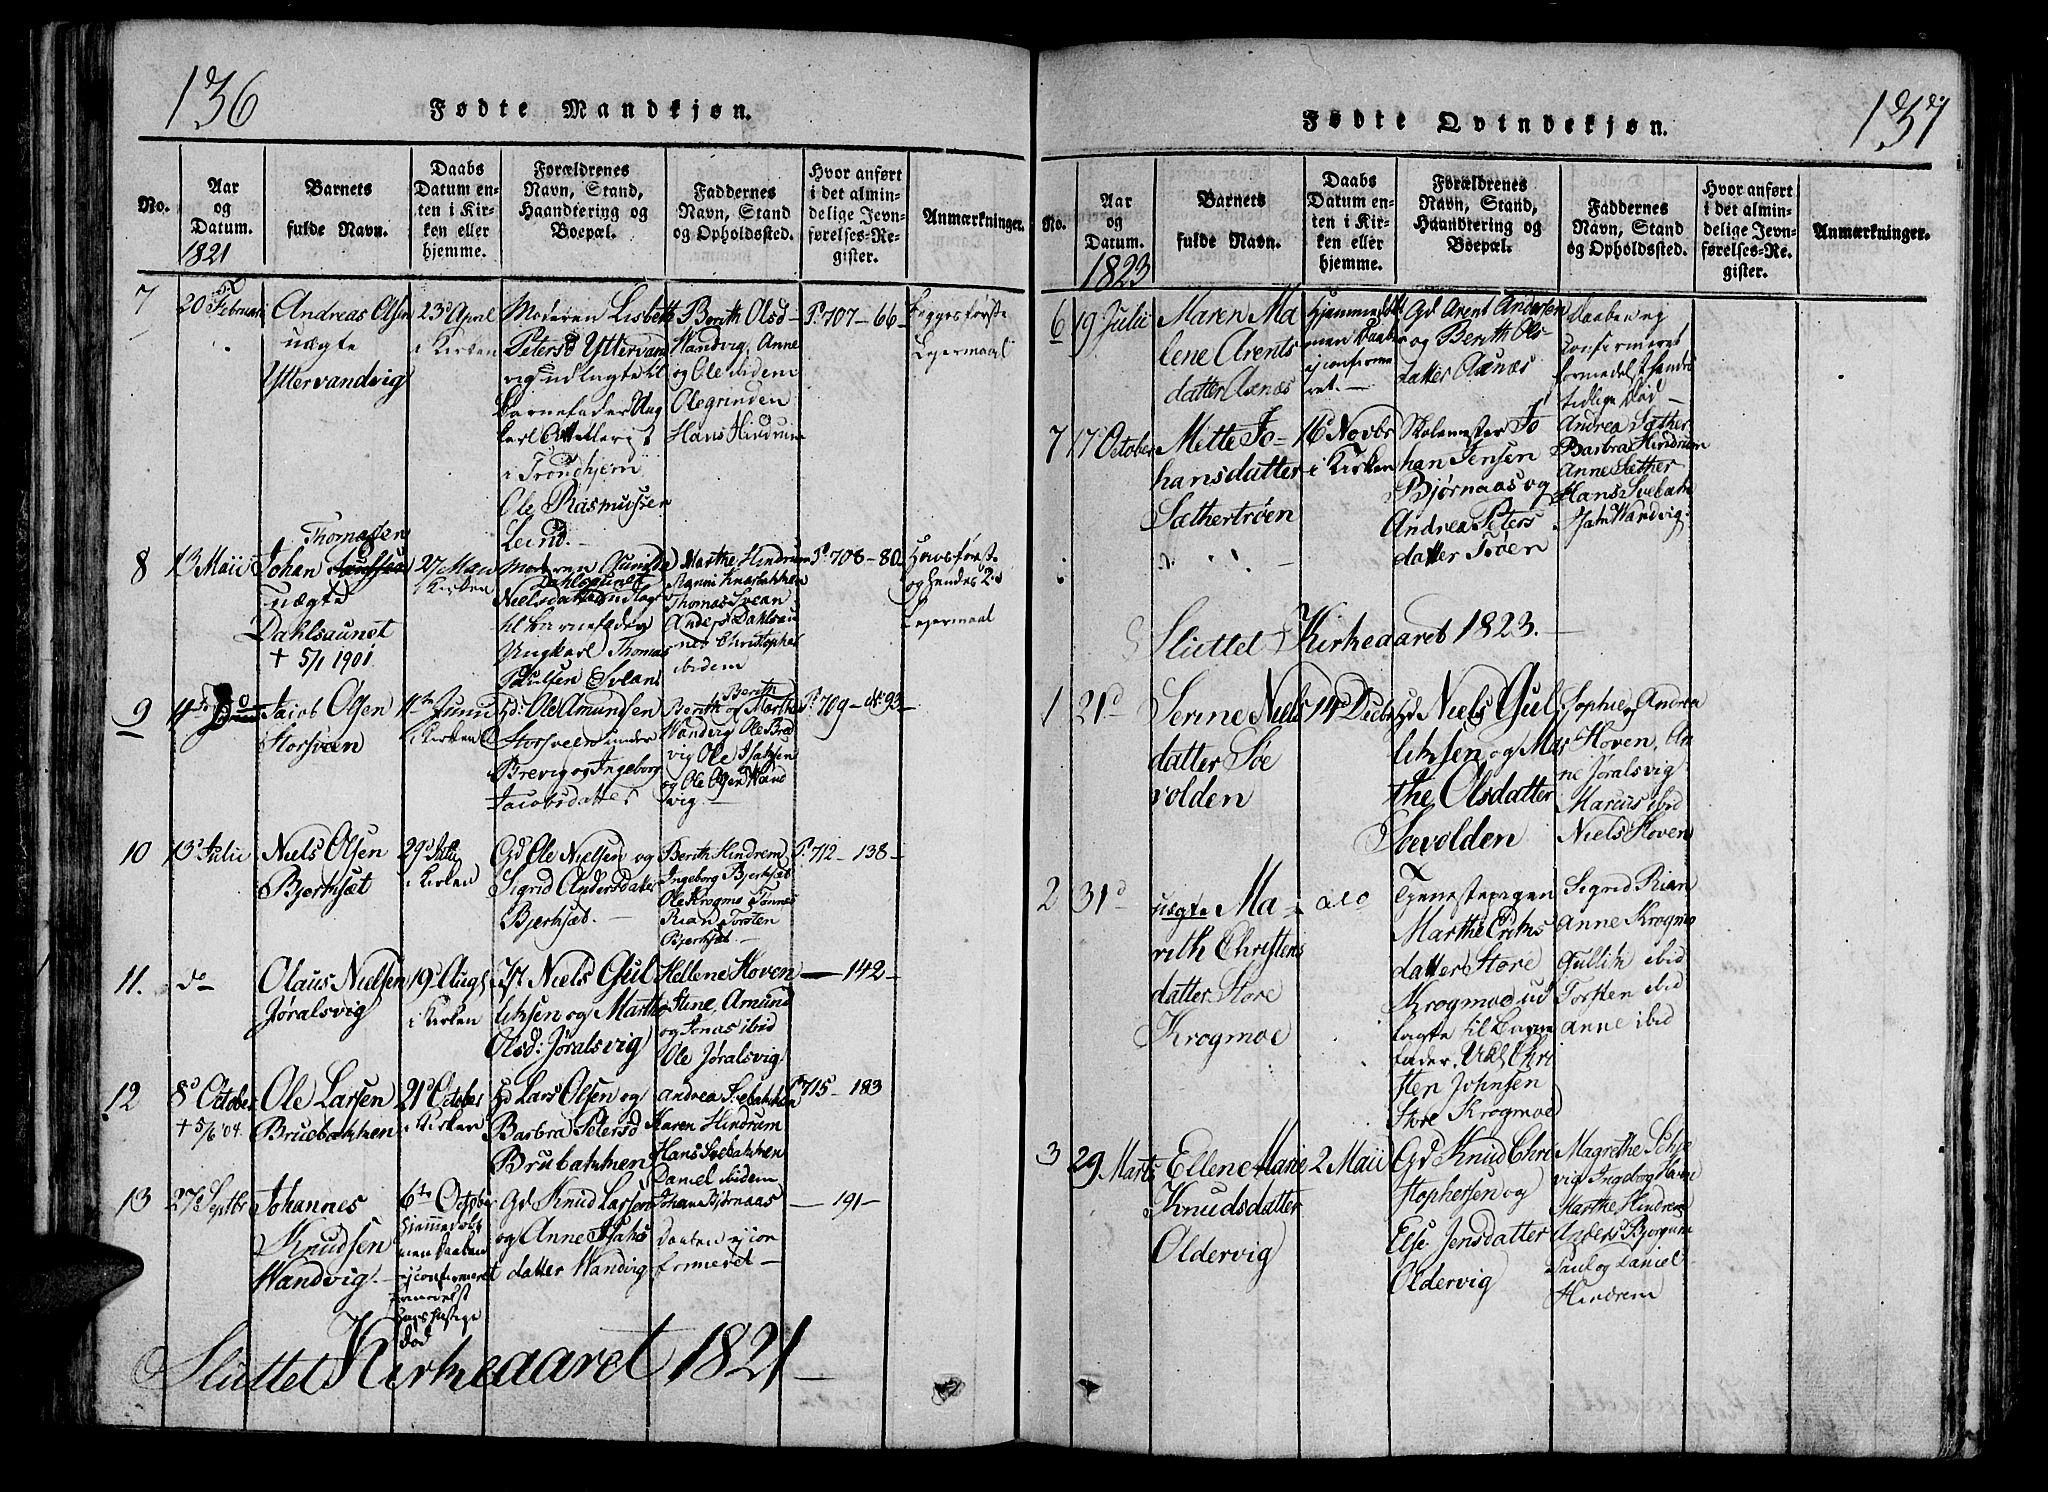 136
Fødte Mandkjøn.
No.
Aar
og
Datum.
1821
Barnets
fulde Navn.
Daabs
Datum en-
ten i Kir-
ken eller
hjemme.
Forældrenes
Navn, Stand,
Haandtering og
Boepæl.
Faddernes
Navn, Stand
og Opholdssted.
Hvor anført
i det almin-
delige Jevn-
førelses-Re-
gister.
Anmærkninger.
7
20 Februari
Andreas Olsen
uægte
Yttervandvig
23d April
i Kirken
Moderen Lisbeth
Petersd Yttervand
vig udlagte til
Barnefader Ung
karl
i Trondhjem
Ole Rasmussen
Leind.
Berith Olsd
Wandvig, Anne
og Ole ibidem
Ole grinden
Hans Hindrum
P. 707 - 66 -
Begges første
Lejermaal
8
13 Maii
Thomasen
Johan
uægte
Dahlsaunet
+ 5/1 1901
27 Maii
i Kirken
Moderen Gunilde
Dahlsaunet
Nielsdatter udlagte
til barnefader
Ungkarl Thomas
Paulsen Svean
Marthe Hindrum
Thomas Svean
Anders Dahlsau
net Christopher
ibidem
P. 708 - 80.
Hans første
og hendes 2d
Lejermaal
9
Jacob Olsen
Storsveen
11te Junii
i Kirken
Gd: Ole Amundsen
Storsveen under
Brevig og Ingeborg
Jacobsdatter
Berith
Berith og Marthe
Wandvig Ole Bre
vig Ole Isaksen
og Ole Olsen Wand
vig.
P. 709 - 93 -
10
13d Julii
Niels Olsen
Bjerksæt
29d Julii
i Kirken
Gd Ole Nielsen og
Sigrid Andersdatter
Bjerksæt.
Berith Hindrem
Ingeborg Bjerksæt
Ole Krogmo Tønnes
Rian Torsten
Bjerksæt
P. 712 - 138 -
11.
do
Olaus Nielsen
Jøralsvig
19d Augs
i Kirken
Niels Gul
liksen og Marthe
Olsd: Jøralsvig
Hellene Hoven
Stine, Amund
og Jonas ibid
Ole Jøralsvig
- 142 -
12
8d October
+ 5/6 04.
Ole Larsen
Bruebakken
21d October
i Kirken
Gd Lars Olsen og
Barbra Petersd
Brubakken
Andrea Svebakken
Karen Hindrum
Hans Svebakken
Daniel ibidem
P. 715 - 183
13
27d Septbr
Johannes
Knudsen
Wandvig.
6te October
hjemmedøbt
men daaben
ej confirmeret
formedelst
hastige
død
Gd Knud Larsen
og Anne Isaks
datter Wandvig
Johan Bjørnaas
Daaben ej con
firmeret -
- 191 -
Sluttet Kirkeaaret 1821 -
137
Fødte Qvindekjøn.
No.
Aar
og
Datum.
1823
Barnets
fulde Navn.
Daabs
Datum en-
ten i Kir-
ken eller
hjemme.
Forældrenes
Navn, Stand,
Haandtering og
Boepæl.
Faddernes
Navn, Stand
og Opholdssted.
Hvor anført
i det almin-
delige Jevn-
førelses-Re-
gister.
Anmærkninger.
6
19 Julii
Maren Ma
lene Arents
datter Aunæs
Hjemmedøbt
men Daaben
ej confirme
ret.
Gd Arent Andersen
og Berith Ols
datter Aunæs
Daaben ej
confirmeret
formedelst
tidlige Død -
7
17 October
Mette Jo-
hansdatter
Sæthertrøen
16d Novbr
i Kirken
Skolemester Jo
han Jensen
Bjørnaas og
Andrea Peters
datter Trøen
Andrea Sæther
Barbra Hindrum
Anne Sæther
Hans Svebakk
Wandvig.
Sluttet Kirkeaaret 1823.
1
21d
Serine Niels
datter Søe
volden
14d Decbr
Gd Niels Gul
liksen og Mar
the Olsdatter
Soevolden
Sophie Andrea
Hoven, An
ne Jøralsvig
Marcus ibid
Niels Hoven
2
31d
uægte Ma
rith Christens
datter Store
Krogmoe
Tjenestepigen
Marthe Eriks
datter Store
Krogmoe ud
lagte til Barne
fader, Chri
sten Johnsen
Store Krogmoe
Sigrid Rian
Anne Krogmo
Gullik ibid
Torsten ibid
Anne ibid
3
29 Marts
Ellene Marie
Knudsdatter
Oldervig
2 Maii
Gd Knud Chri
stophersen og
Else Jensdatter
Oldervig
Magrethe
vig Ingeborg
Marthe Hindrem
Anders Bjørgum
Paul og Daniel
Hindrem